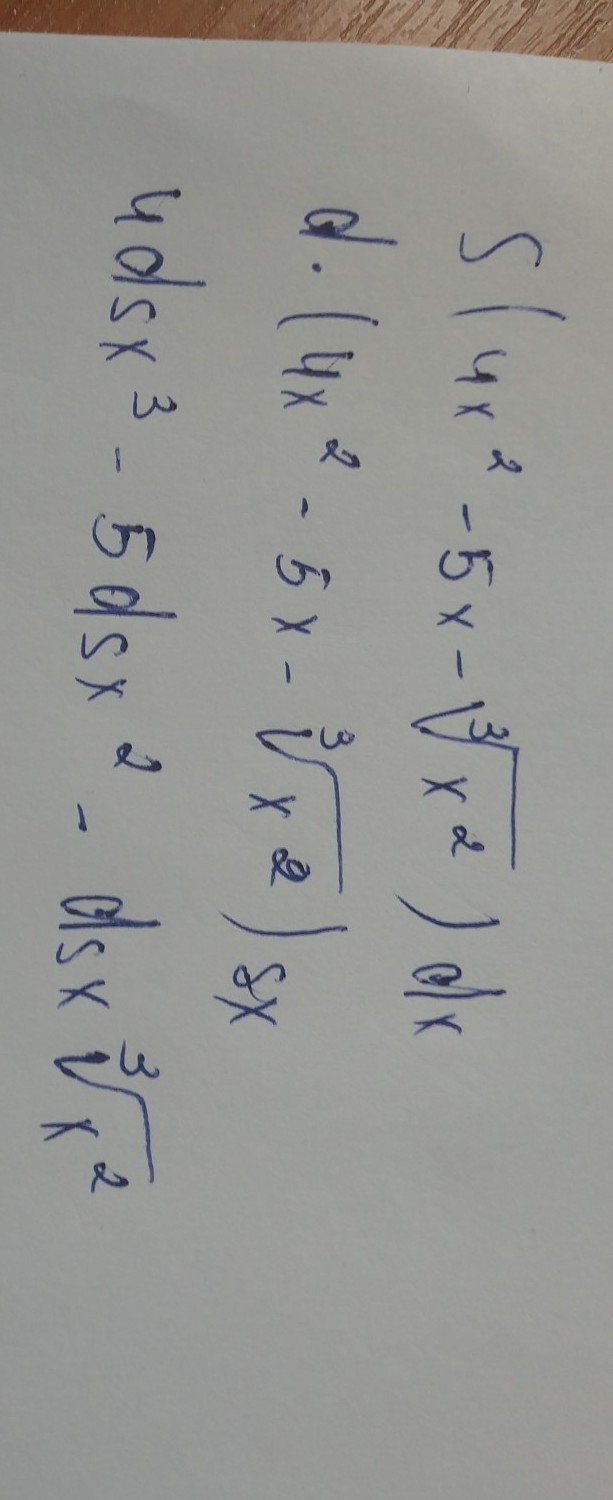 S(4x² - 5x - ∛x²) dx
d · (4x² - 5x - ∛x²) sx
4dsx³ - 5dsx² - dsx∛x²